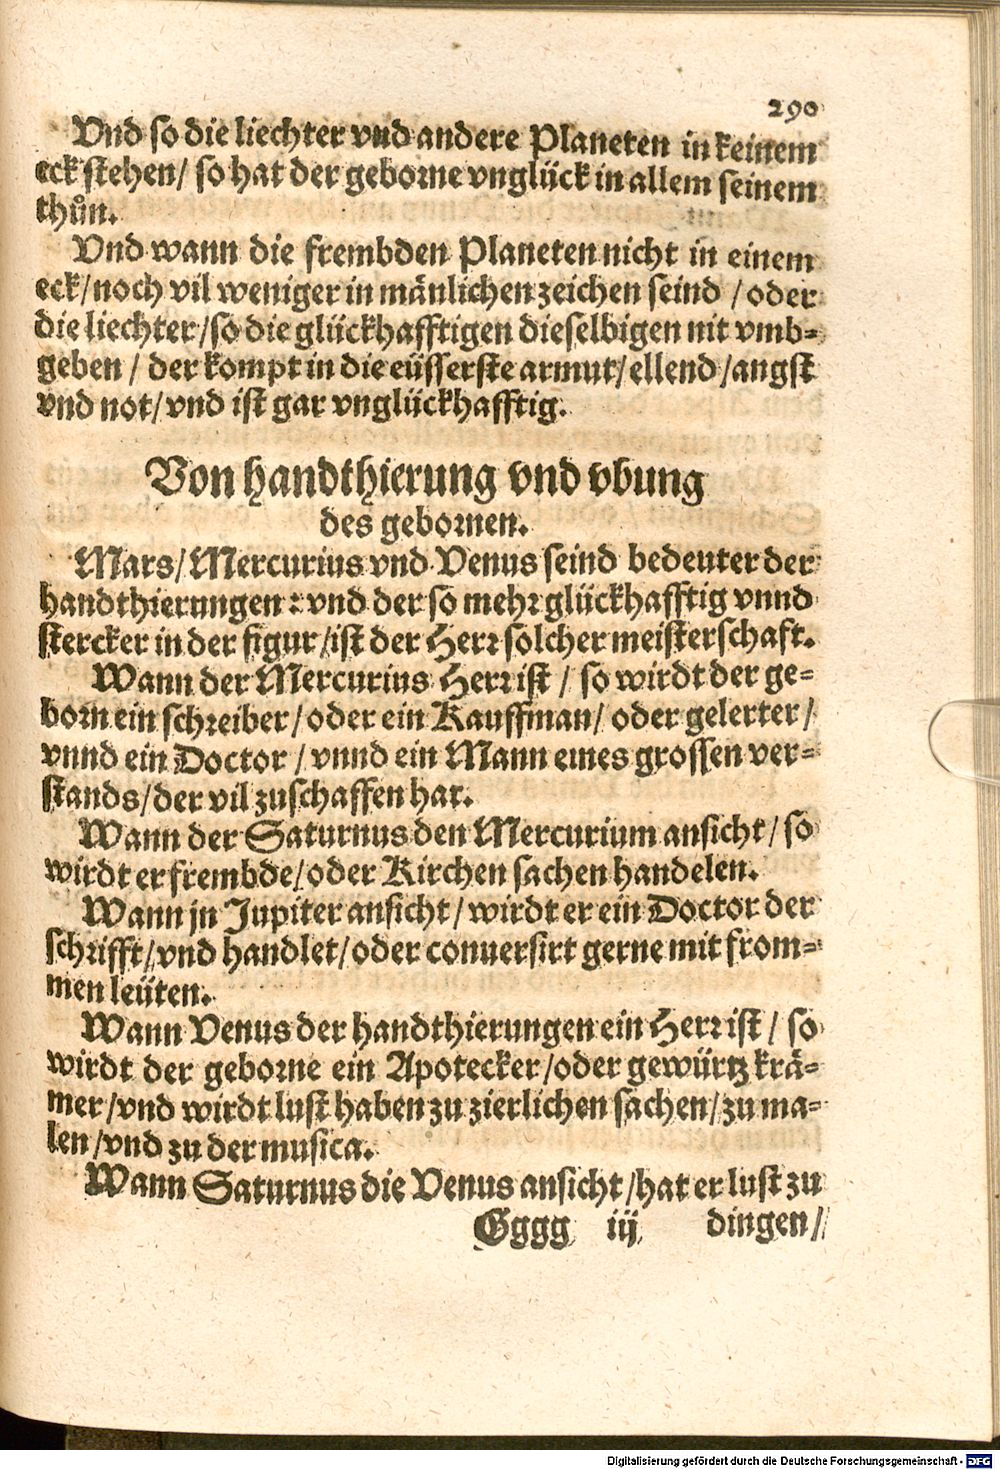 290
Vnd so die liechter vnd andere Planeten in keinem
eck stehen/ so hat der geborne vnglück in allem seinem
thůn.
Vnd wann die frembden Planeten nicht in einem
eck/noch vil weniger in mänlichen zeichen seind /oder
die liechter/so die glückhafftigen dieselbigen nit vmb-
geben / der kompt in die eüsserste armut/ellend/angst
vnd not/vnd ist gar vnglückhafftig.
Von handthierung vnd vbung
des gebornen.
Mars/Mercurius vnd Venus seind bedeuter der
handthierungen: vnd der so mehr glückhafftig vnnd
stercker in der figur/ist der Herr solcher meisterschaft.
Wann der Mercurius Herr ist / so wirdt der ge-
born ein schreiber/oder ein Kauffman/ oder gelerter/
vnnd ein Doctor / vnnd ein Mann eines grossen ver-
stands/der vil zuschaffen hat.
Wann der Saturnus den Mercurium ansicht/ so
wirdt er frembde/oder Kirchen sachen handelen.
Wann jn Jupiter ansicht/wirdt er ein Doctor der
schrifft/vnd handlet/oder conuersirt gerne mit from-
men leüten.
Wann Venus der handthierungen ein Herr ist/ so
wirdt der geborne ein Apotecker/oder gewürtz krä-
mer/vnd wirdt lust haben zu zierlichen sachen/zu ma-
len/vnd zu der musica.
Wann Saturnus die Venus ansicht/hat er lust zu
Gggg iij dingen/
Digitalisierung gefördert durch die Deutsche Forschungsgemeinschaft - DFG